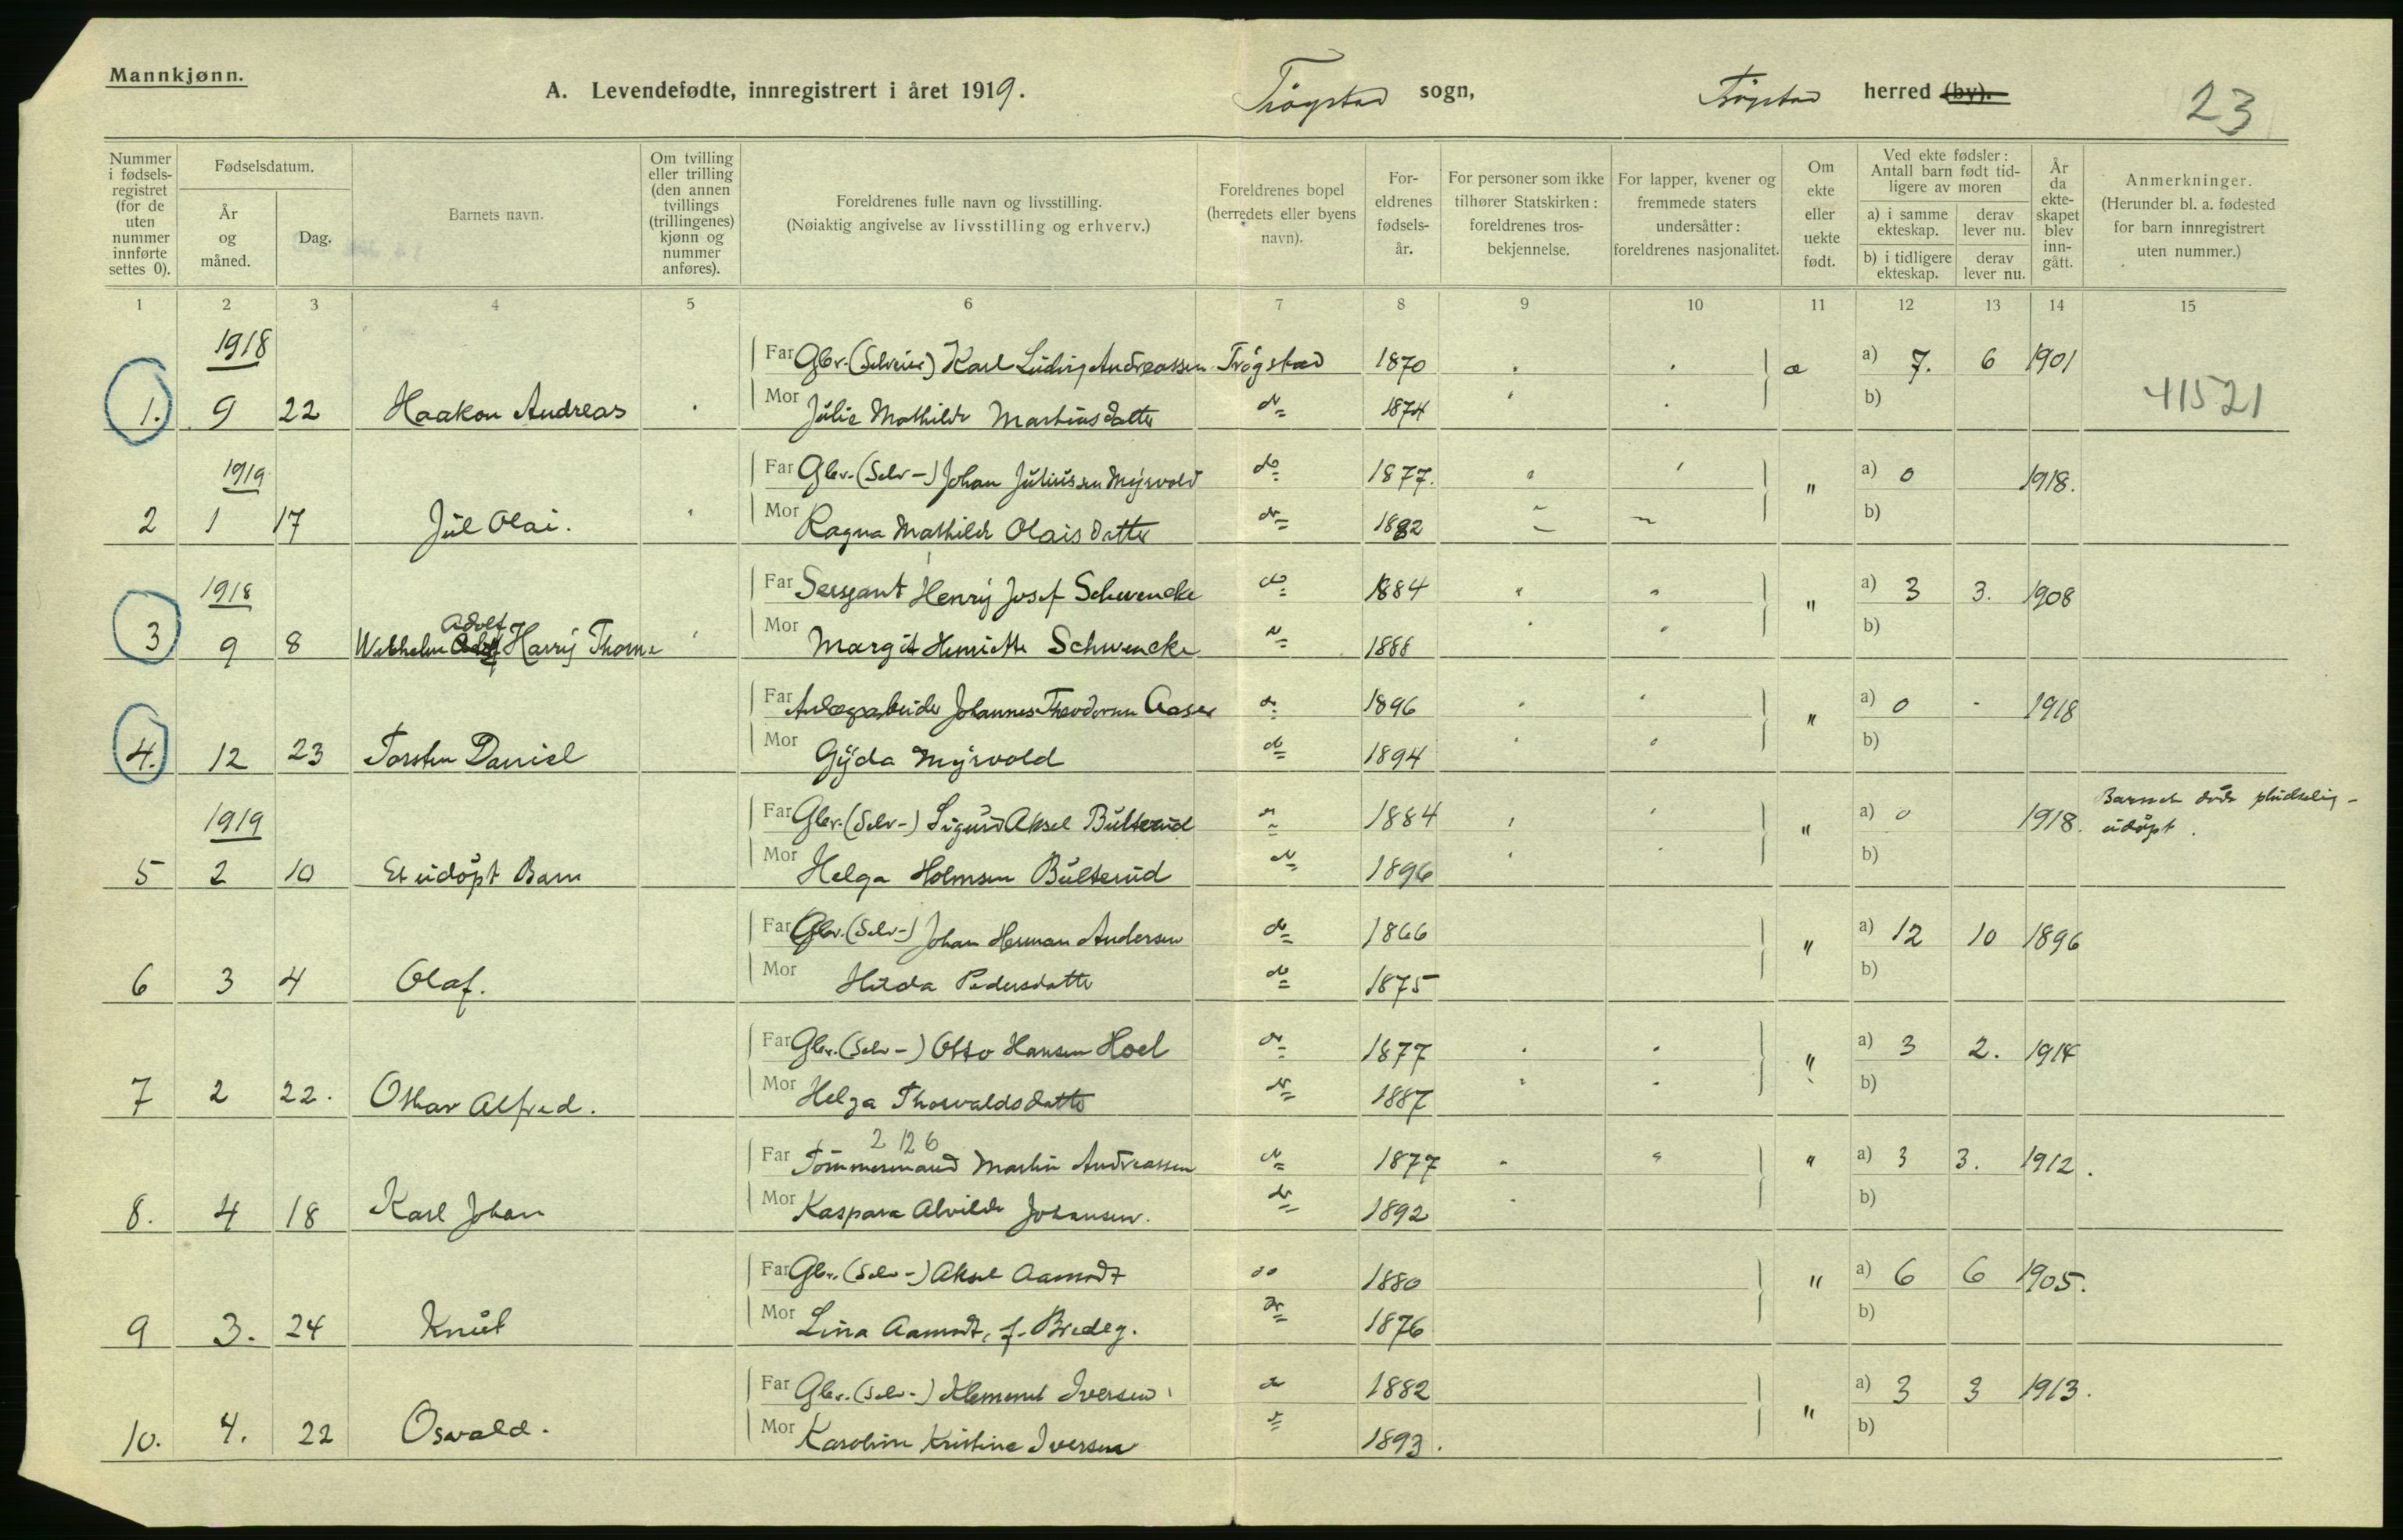 Mannkjønn.
A. Levendefødte, innregistrert i året 1919.
Trøgstad sogn,
Trøgstad herred (by).
23
Nummer i fødsels-registret (for de uten nummer innførte settes 0).
Fødselsdatum.
År og måned.
Dag.
Barnets navn.
Om tvilling eller trilling (den annen tvillings (trillingenes) kjønn og nummer anføres).
Foreldrenes fulle navn og livsstilling.
(Nøiaktig angivelse av livsstilling og erhverv.)
Foreldrenes bopel (herredets eller byens navn).
For-eldrenes fødsels-år.
For personer som ikke tilhører Statskirken: foreldrenes tros-bekjennelse.
For lapper, kvener og fremmede staters undersåtter: foreldrenes nasjonalitet.
Om ekte eller uekte født.
Ved ekte fødsler: Antall barn født tid-ligere av moren
a) i samme ekteskap.
derav lever nu.
b) i tidligere ekteskap.
derav lever nu.
År da ekte-skapet blev inn-gått.
Anmerkninger.
(Herunder bl. a. fødested for barn innregistrert uten nummer.)
1 2 3 4 5 6 7 8 9 10 11 12 13 14 15
1918
Far Gbr. (Selveier) Karl Ludvig Andreassen Trøgstad 1870 a) 7. 6 1901
1. 9 22 Haakon Andreas Mor Julie Mathilde Martinsdatter do 1874 b)
41521
1919
Far Gbr. (Selv-) Johan Juliussen Myrvold do 1877. " a) 0 1918.
2 1 17 Jul Olai. Mor Ragna Mathilde Olaisdatter do 1882 b)
1918
Far Sersjant Henry Josef Schwencke do 1884 " a) 3 3. 1908
Adolf
3 9 8 Wilhelm Harry Thorne Mor Margit Henriette Schwencke do 1888 b)
Far Anlægsarbeider Johannes Theodorsen Aaser do 1896 " a) 0 - 1918
4. 12 23 Torsten Daniel Mor Gyda Myrvold do 1894 b)
1919
Far Gbr. (Selv-) Sigurd Aksel Bulterud do 1884 " a) 0 1918.
Barnet døde pludselig - udøpt.
5 2 10 Et udøpt Barn Mor Helga Holmsen Bulterud do 1896 b)
Far Gbr. (Selv-) Johan Herman Andersen do 1866 " a) 12 10 1896
6 3 4 Olaf. Mor Hilda Pedersdatter do 1875 b)
Far Gbr. (Selv-) Otto Hansen Hoel do 1877 " a) 3 2. 1914
7 2 22. Othar Alfred. Mor Helga Thorvaldsdatter do 1887 b)
2 126
Far Tømmermand Martin Andreassen do 1877 " a) 3 3. 1912.
8. 4 18 Karl Johan Mor Kaspara Alvilde Johansen. do 1892 b)
Far Gbr. (Selv-) Aksel Aamodt do 1880 " a) 6 6 1905.
9 3. 24 Knut Mor Lina Aamodt, f. Bredeg. do 1876 b)
Far Gbr. (Selv-) Klemmet Iversen do 1882 " a) 3 3 1913.
10. 4. 22 Osvald. Mor Karoline Kristine Iversen 1893. b)